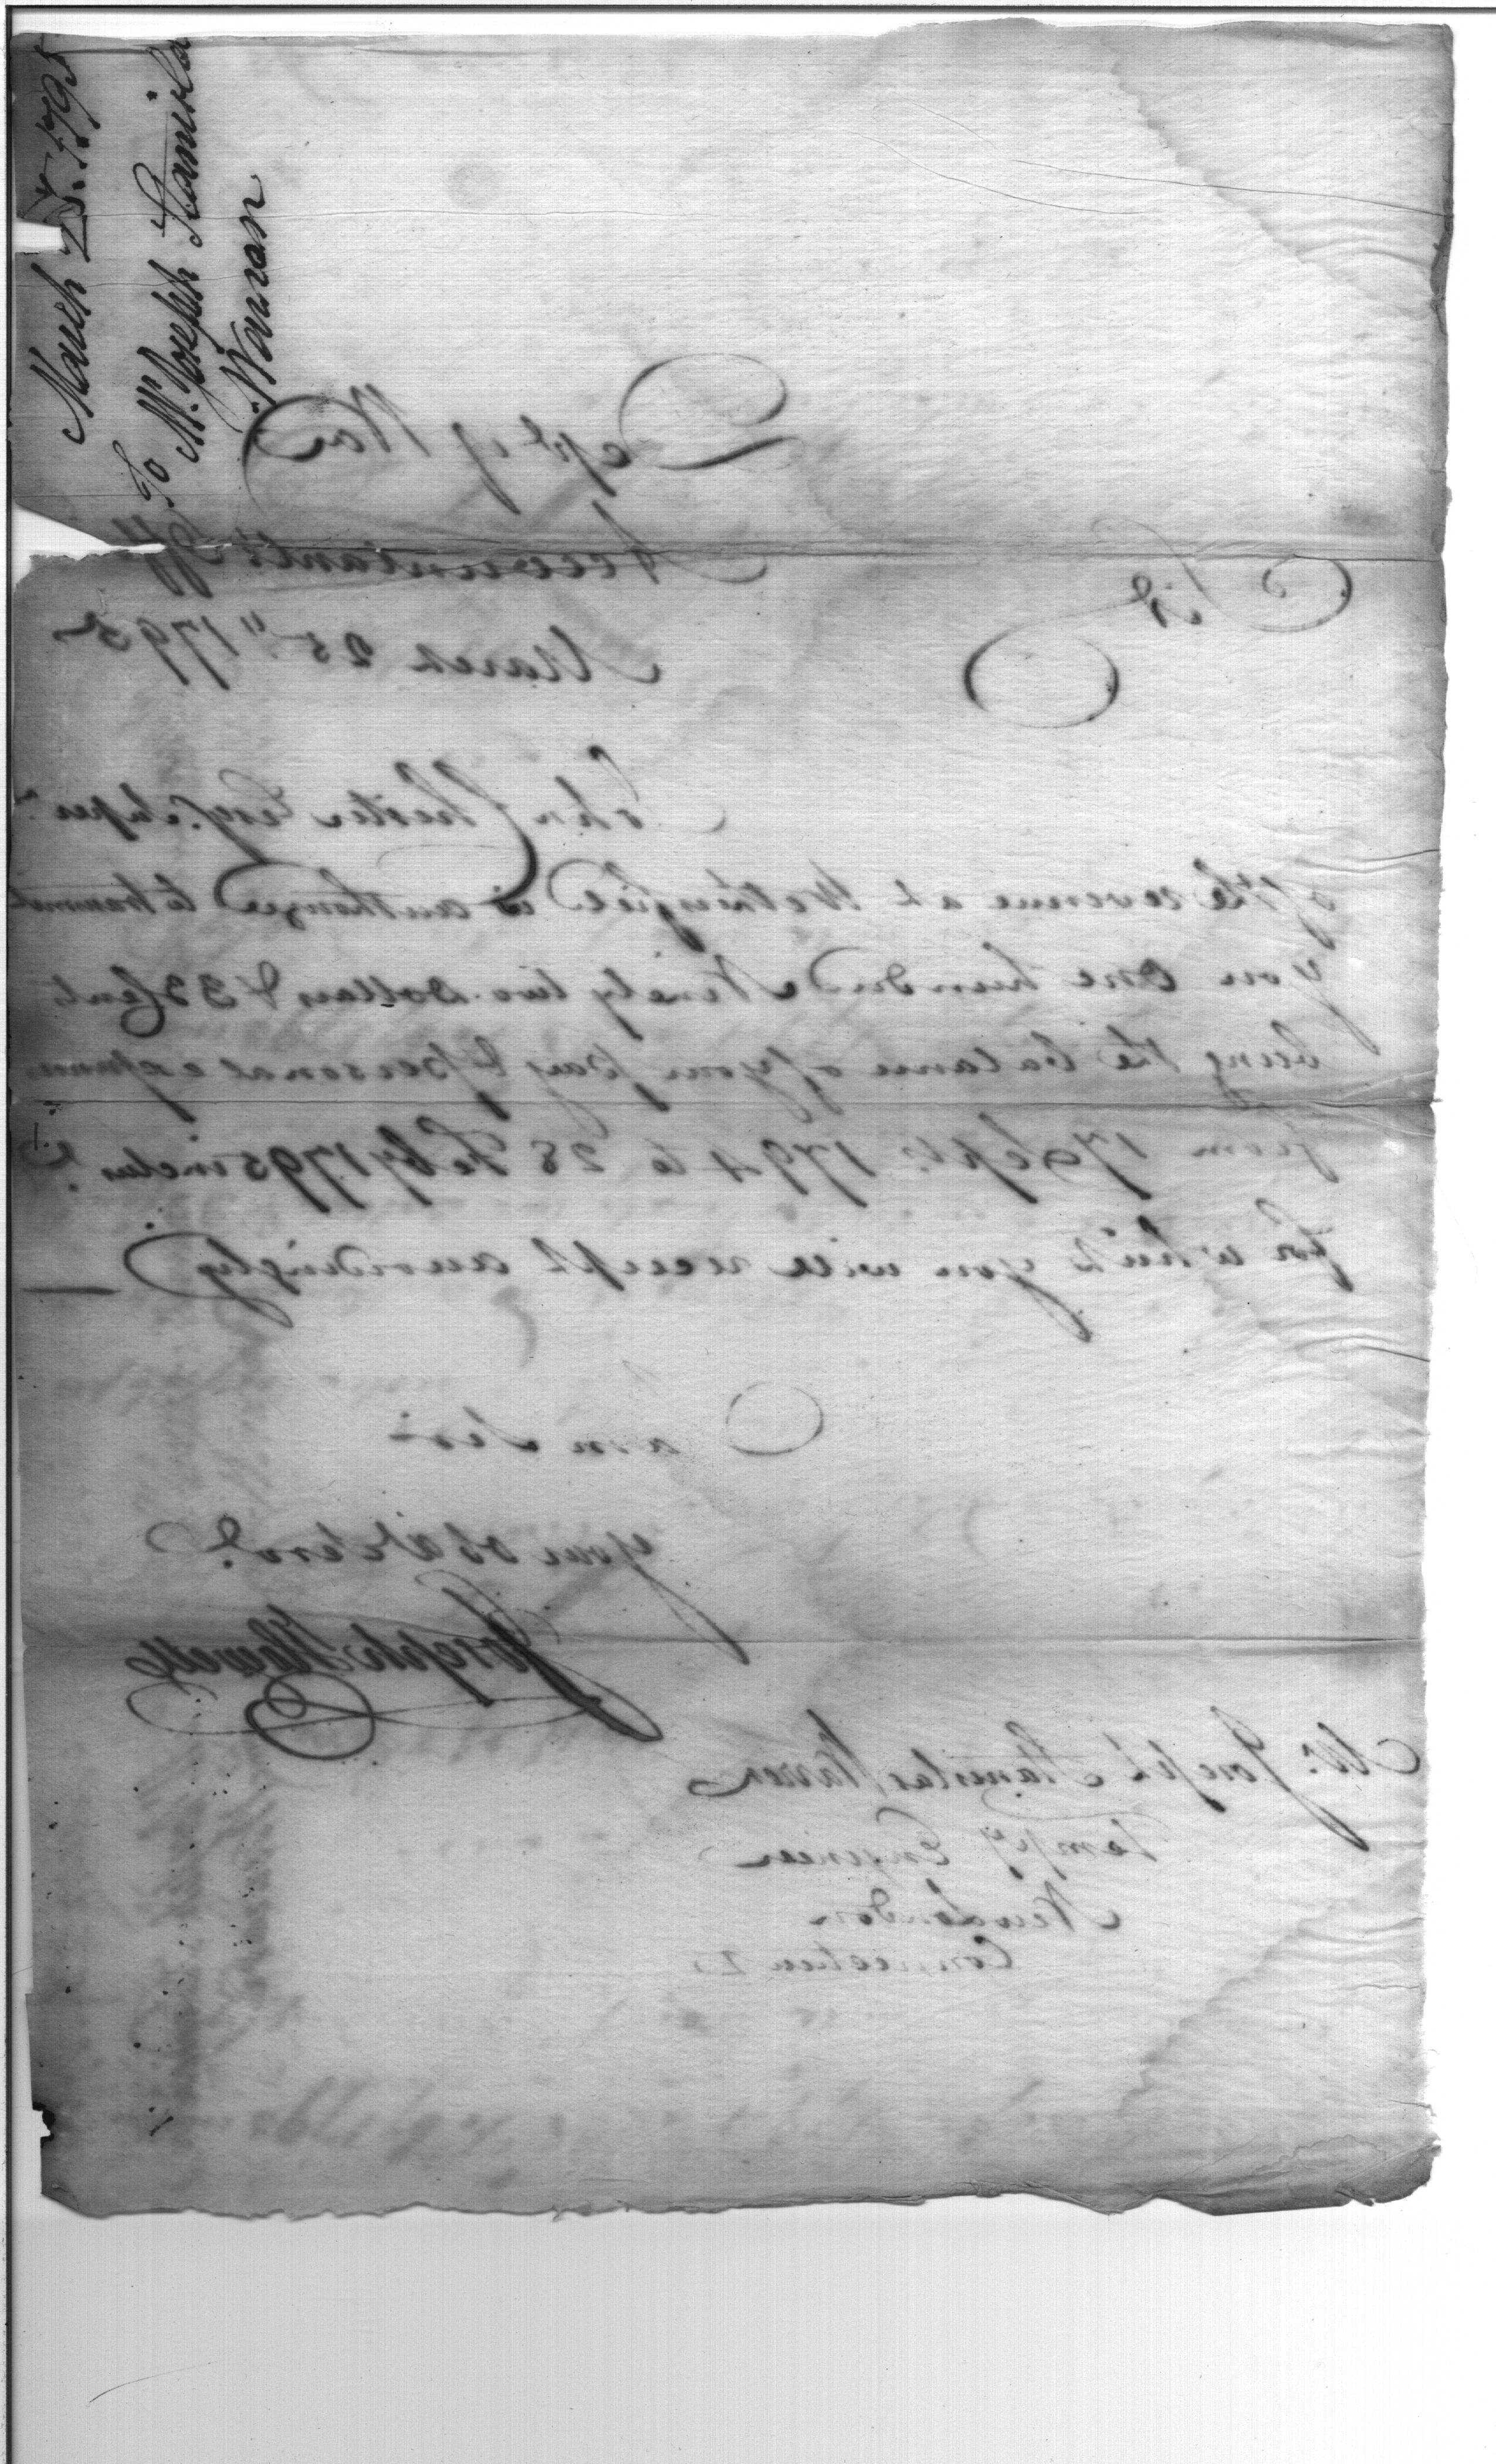 March 25th. 1795
To
Mr. Joseph Stanisla
Warran
Dept of War
Accountants Off
March 25th 1795
Sir
John Chester Esqr. Super
of the revenue at Wethersfield is authorized to transmit
you One hundred Ninety two Dollars & 33 Cents
being the balance of your pay & personal expenses
from 17 Sept: 1794 to 28 Feby 1795 inclus
for which you will receipt accordingly —
I am Sir
your obdt servt.
Joseph Howell
Mr. Joseph Stanislas Warren
Tempy Engineer
New London
Connecticut